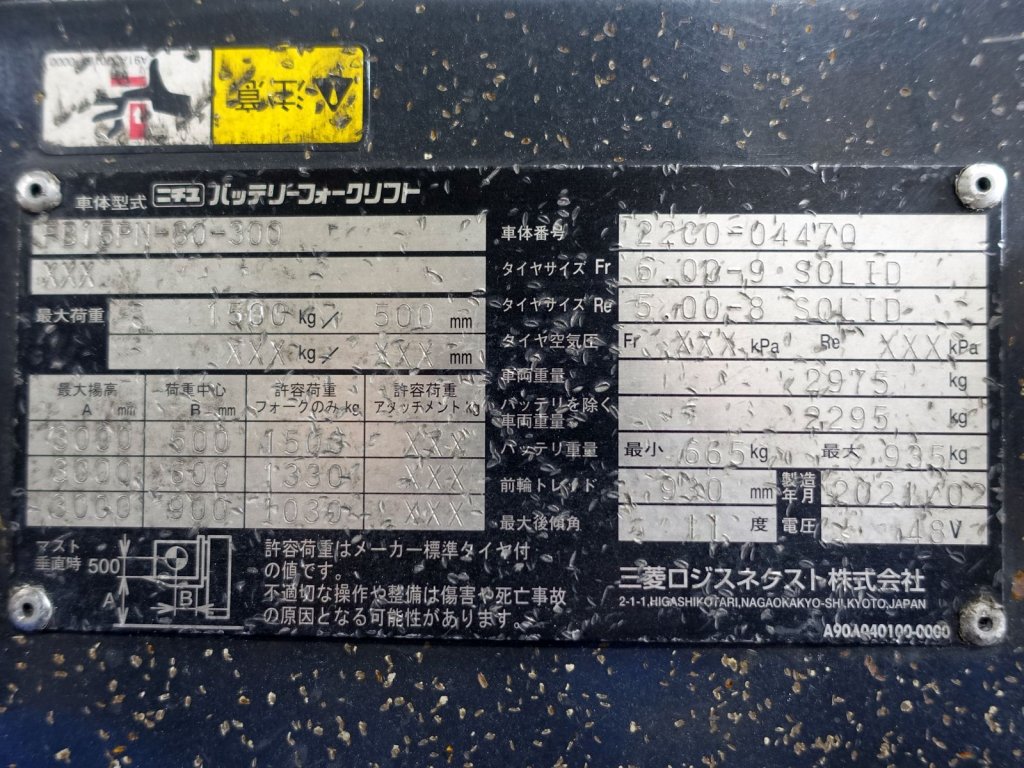 注意
車体型式 ニチユ バッテリーフォークリフト
FB15PN-80-300
XXX
最大荷重 1500 kg/ 500 mm
XXX kg/ XXX mm
最大揚高 A mm 荷重中心 B mm 許容荷重 フォークのみ kg 許容荷重 アタッチメント kg
3000 500 1500 XXX
3000 600 1330 XXX
3000 900 1030 XXX
マスト
垂直時 500
A
B
許容荷重はメーカー標準タイヤ付
の値です。
不適切な操作や整備は傷害や死亡事故
の原因となる可能性があります。
車体番号 22C0-04470
タイヤサイズ Fr 6.00-9 SOLID
タイヤサイズ Re 5.00-8 SOLID
タイヤ空気圧 Fr XXX kPa Re XXX kPa
車両重量 2975 kg
バッテリを除く
車両重量 2295 kg
バッテリ重量 最小 665 kg 最大 935 kg
前輪トレッド mm 製造年月 2021/02
最大後傾角 11 度 電圧 48 V
三菱ロジスネクスト株式会社
2-1-1,HIGASHIKOTARI,NAGAOKAKYO-SHI,KYOTO,JAPAN
A90A040100-0000